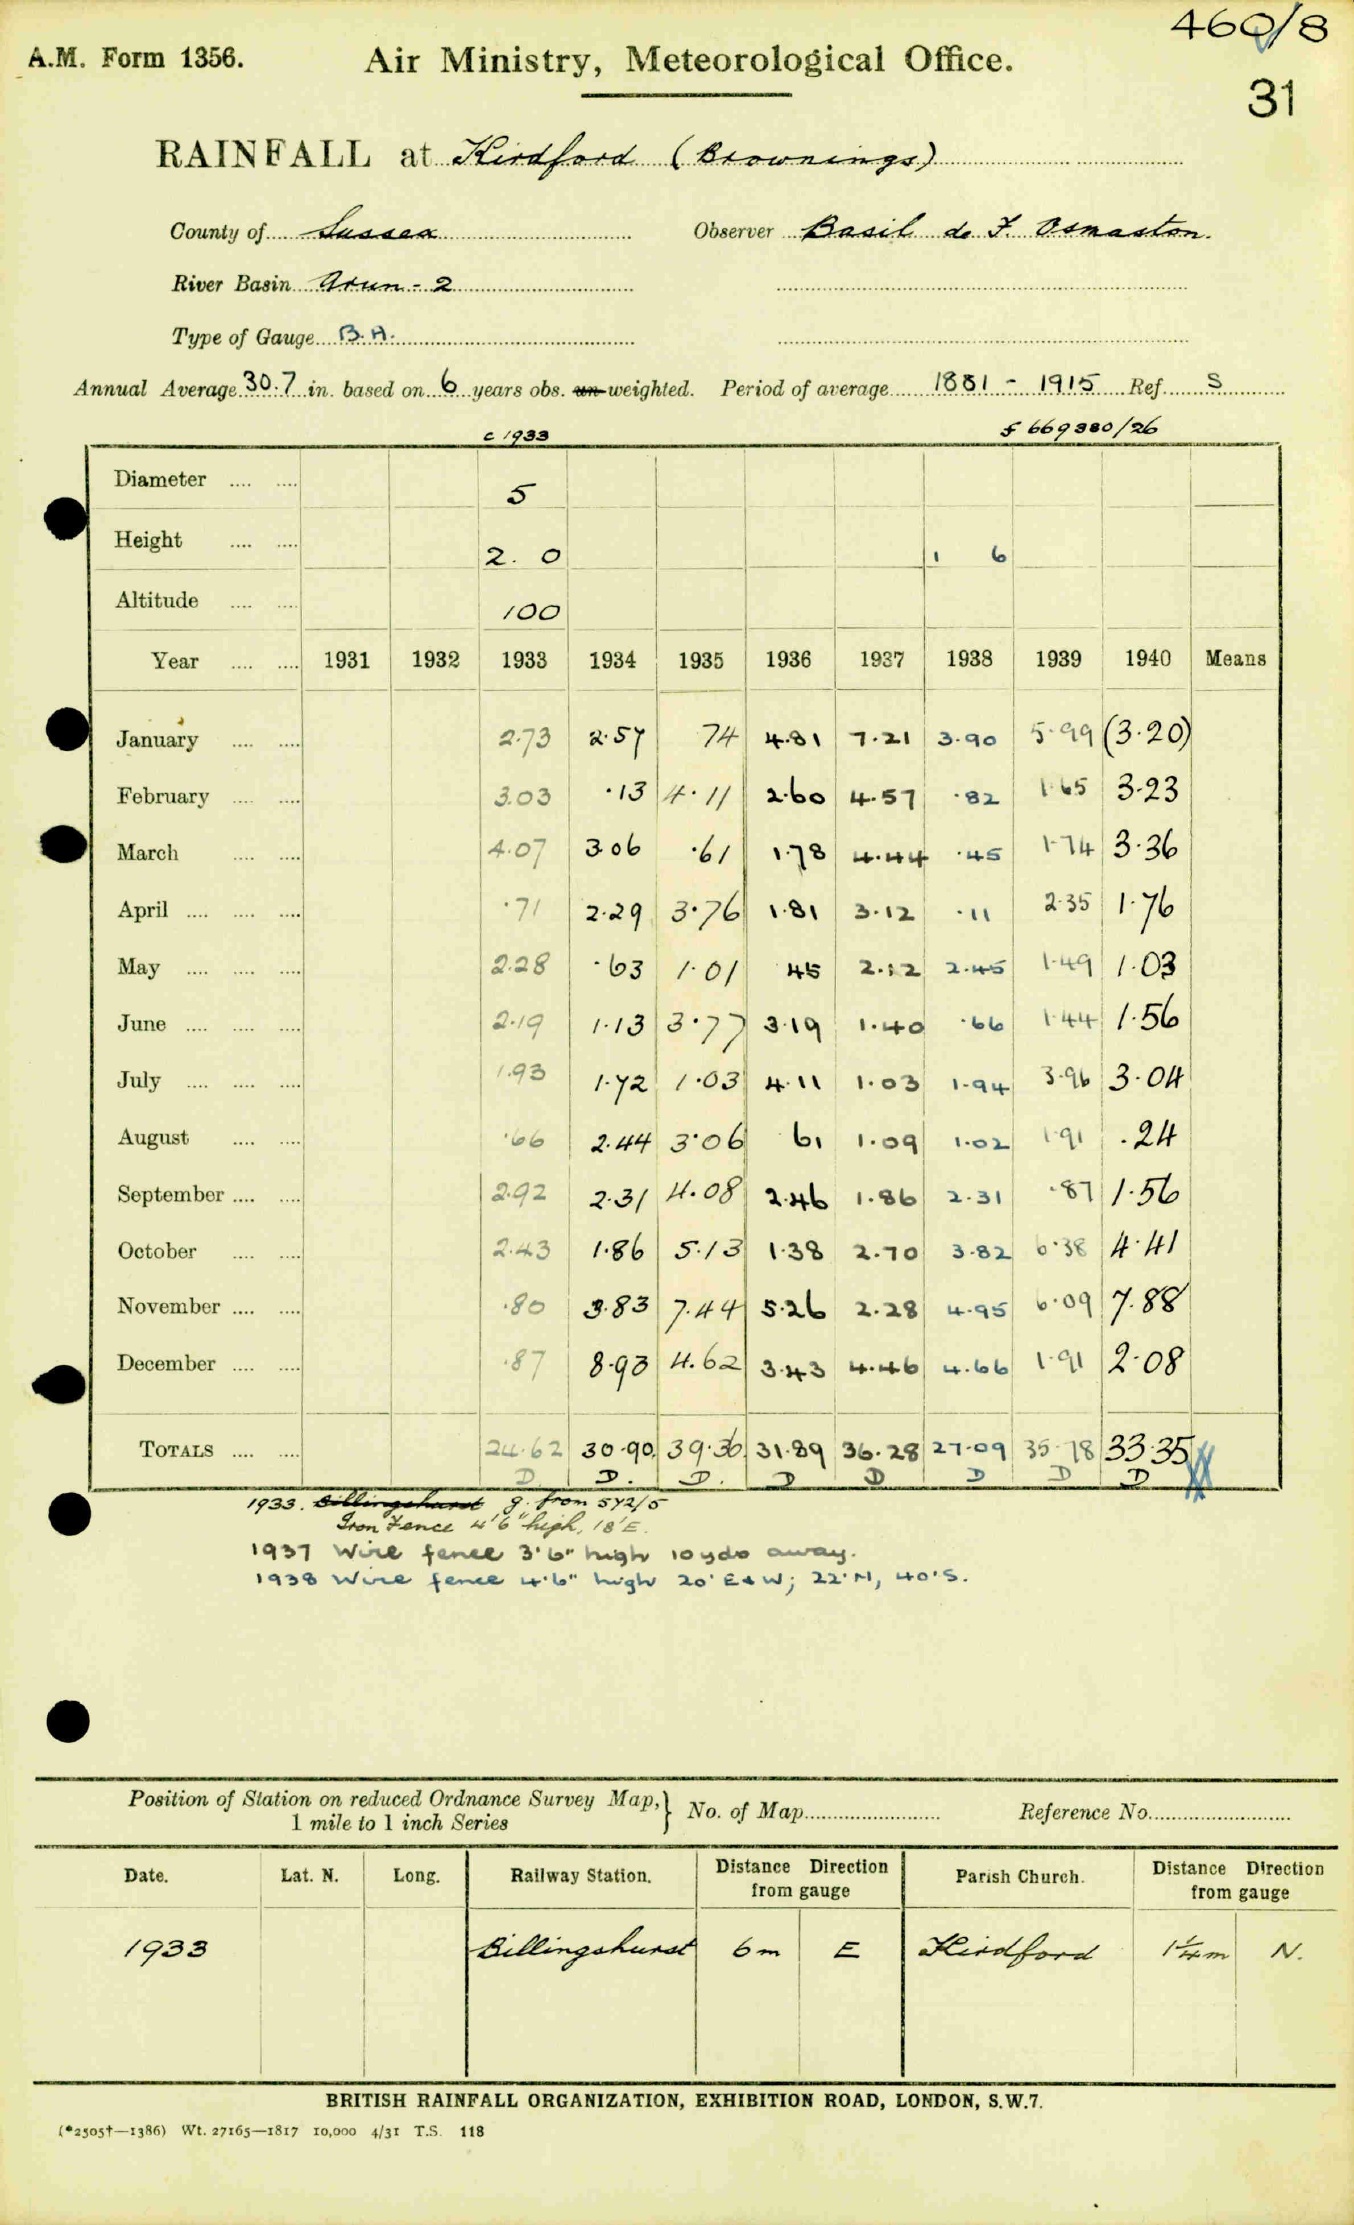 460/8
A.M. Form 1356. Air Ministry, Meteorological Office.
31
RAINFALL at Kirdford (Brownings)
County of Sussex Observer Basil de F. Osmaston.
River Basin Arun - 2
Type of Gauge B.A.
Annual Average 30.7 in. based on 6 years obs. un-weighted. Period of average 1881 - 1915 Ref. S
c 1933 f 669380/26
Diameter .... .... 5
Height .... .... 2. 0 1 6
Altitude .... .... 100
Year .... .... 1931 1932 1933 1934 1935 1936 1937 1938 1939 1940 Means
January .... .... 2.73 2.57 74 4.81 7.21 3.90 5.99 (3.20)
February .... .... 3.03 .13 4.11 2.60 4.57 .82 1.65 3.23
March .... .... 4.07 3.06 .61 1.78 4.44 .45 1.74 3.36
April .... .... .... .71 2.29 3.76 1.81 3.12 .11 2.35 1.76
May .... .... .... 2.28 .63 1.01 45 2.12 2.45 1.49 1.03
June .... .... .... 2.19 1.13 3.77 3.19 1.40 .66 1.44 1.56
July .... .... .... 1.93 1.72 1.03 4.11 1.03 1.94 3.96 3.04
August .... .... .66 2.44 3.06 61 1.09 1.02 1.91 .24
September .... .... 2.92 2.31 4.08 2.46 1.86 2.31 .87 1.56
October .... .... 2.43 1.86 5.13 1.38 2.70 3.82 6.38 4.41
November .... .... .80 3.83 7.44 5.26 2.28 4.95 6.09 7.88
December .... .... .87 8.93 4.62 3.43 4.46 4.66 1.91 2.08
TOTALS .... .... 24.62 30.90 39.36 31.89 36.28 27.09 35.78 33.35
D. D. D. D D D D D
1933. Billingshurst g. from 572/5
Iron Fence 4'6" high, 18'E.
1937 Wire fence 3'6" high 10 yds away.
1938 Wire fence 4'6" high 20' E & W; 22'N, 40'S.
Position of Station on reduced Ordnance Survey Map, } No. of Map Reference No.
1 mile to 1 inch Series
Date. Lat. N. Long. Railway Station. Distance Direction from gauge Parish Church. Distance Direction from gauge
1933 Billingshurst 6m E Kirdford 1¼m N.
BRITISH RAINFALL ORGANIZATION, EXHIBITION ROAD, LONDON, S.W.7.
(*2505†—1386) Wt. 27165—1817 10,000 4/31 T.S. 118